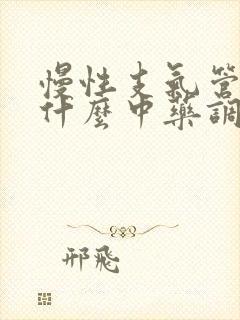 慢性支氣管
什麼中藥調
邢飛